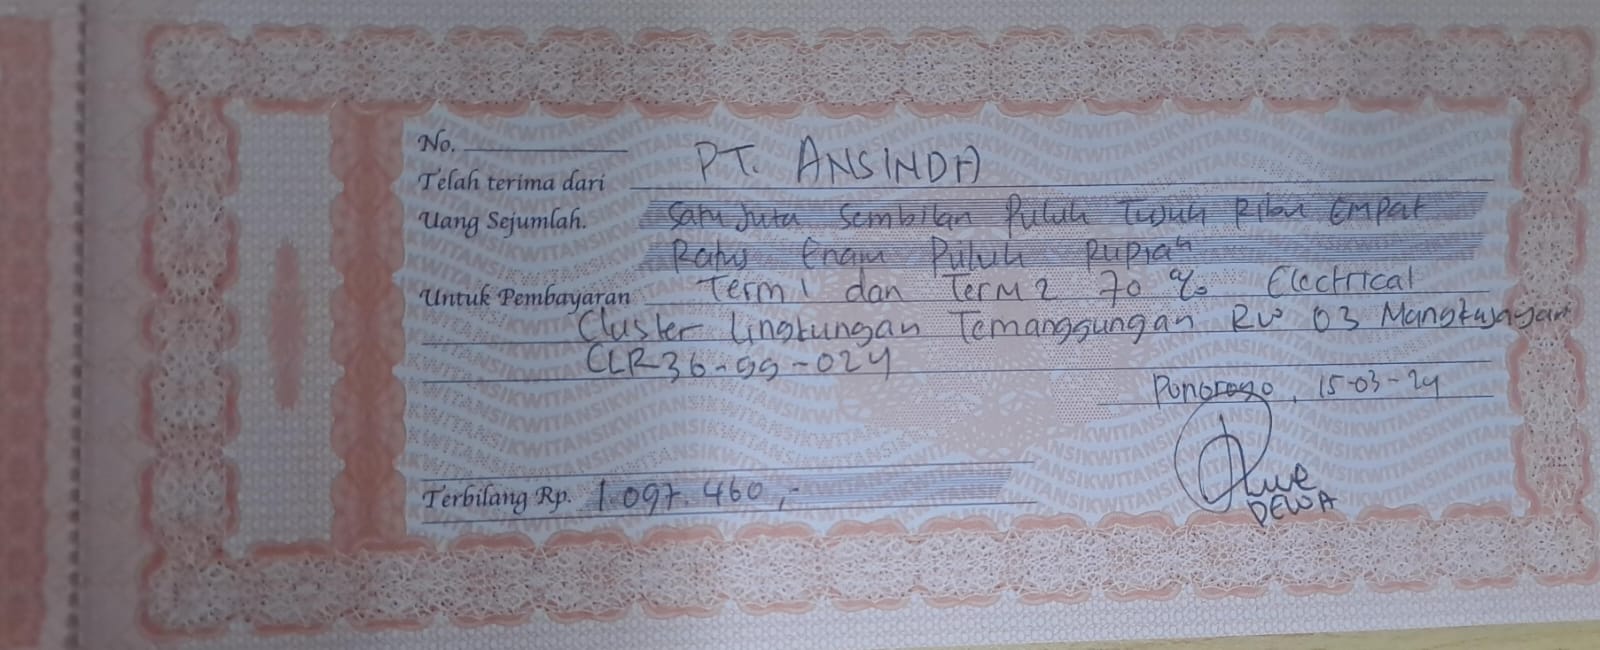 No.
Telah terima dari PT. ANSINDA
Uang Sejumlah. Satu Juta Sembilan Puluh Tujuh Ribu Empat
Ratus Enam Puluh Rupiah
Untuk Pembayaran Term 1 dan Term 2 70 % Electrical
Cluster Lingkungan Temanggungan RW 03 Mangkujayan
CLR36-99-024
Ponorogo, 15-03-24
Terbilang Rp. 1.097.460,-
DEWA